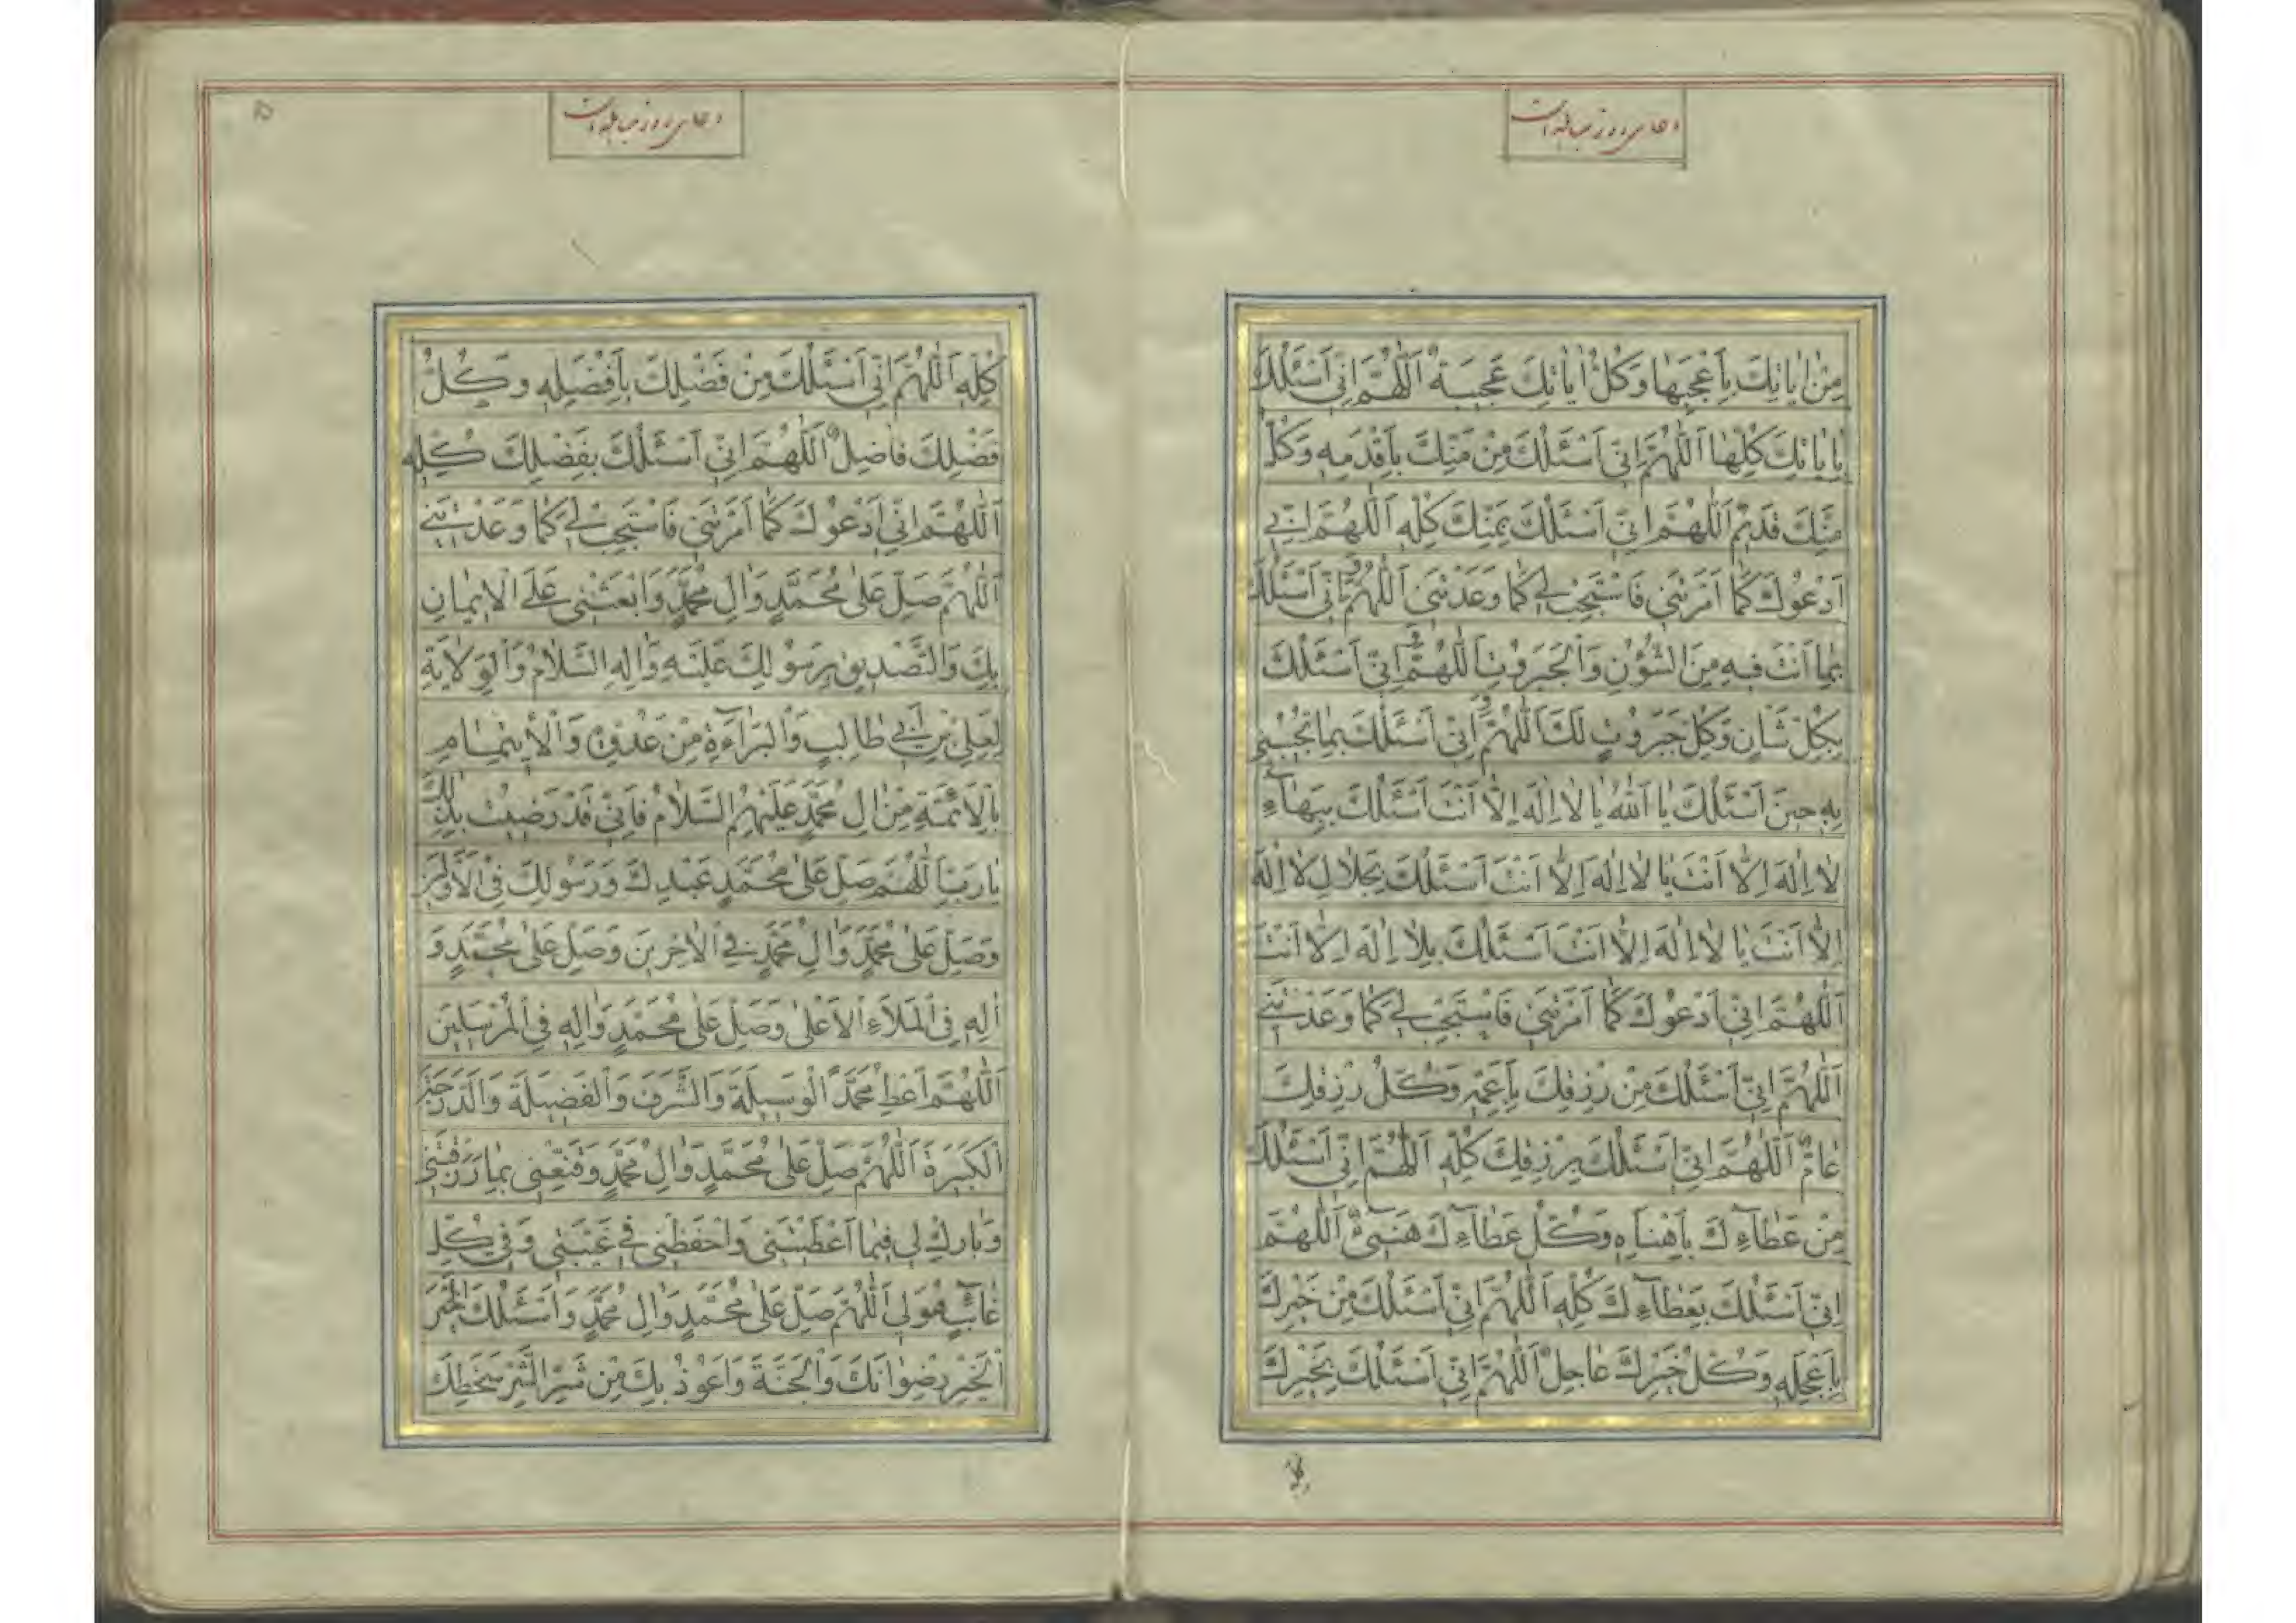 دعای روز مباهله است
مِنْ اٰیاتِكَ بِاَعْجَبِها وَكُلُّ اٰیاتِكَ عَجیبَةٌ اَللّٰهُمَّ اِنّی اَسْئَلُكَ
بِاٰیاتِكَ كُلِّهٰا اَللّٰهُمَّ اِنّی اَسْئَلُكَ مِنْ مَنِّكَ بِاَقْدَمِهِ وَكُلُّ
مَنِّكَ قَدیمٌ اَللّٰهُمَّ اِنّی اَسْئَلُكَ بِمَنِّكَ كُلِّهِ اَللّٰهُمَّ اِنّی
اَدْعُوكَ كَمٰا اَمَرْتَنی فَاسْتَجِبْ لی كَمٰا وَعَدْتَنی اَللّٰهُمَّ وَاِنّی اَسْئَلُكَ
بِمٰا اَنْتَ فیهِ مِنَ الشُّؤُنِ وَالْجَبَرُوتِ اَللّٰهُمَّ وَ اِنّی اَسْئَلُكَ
بِكُلِّ شَاْنٍ وَكُلِّ جَبَرُوتٍ لَكَ اَللّٰهُمَّ وَ اِنّی اَسْئَلُكَ بِمٰا تُجیبُنی
بِهِ حینَ اَسْئَلُكَ یٰا اَللّٰهُ یٰا لاٰ اِلٰهَ اِلاّٰ اَنْتَ اَسْئَلُكَ بِبَهٰآءِ
لاٰ اِلٰهَ اِلاّٰ اَنْتَ یٰا لاٰ اِلٰهَ اِلاّٰ اَنْتَ اَسْئَلُكَ بِجَلاٰلِ لاٰ اِلٰهَ
اِلاّٰ اَنْتَ یٰا لاٰ اِلٰهَ اِلاّٰ اَنْتَ اَسْئَلُكَ بِلاٰ اِلٰهَ اِلاّٰ اَنْتَ
اَللّٰهُمَّ اِنّی اَدْعُوكَ كَمٰا اَمَرْتَنی فَاسْتَجِبْ لی كَمٰا وَعَدْتَنی
اَللّٰهُمَّ اِنّی اَسْئَلُكَ مِنْ رِزْقِكَ بِاَعَمِّهِ وَكُلُّ رِزْقِكَ
عٰامٌّ اَللّٰهُمَّ اِنّی اَسْئَلُكَ بِرِزْقِكَ كُلِّهِ اَللّٰهُمَّ اِنّی اَسْئَلُكَ
مِنْ عَطٰآءِكَ بِاَهْنَاِهِ وَكُلُّ عَطٰآءِكَ هَنیئٌ اَللّٰهُمَّ
اِنّی اَسْئَلُكَ بِعَطٰآءِكَ كُلِّهِ اَللّٰهُمَّ اِنّی اَسْئَلُكَ مِنْ خَیْرِكَ
بِاَعْجَلِهِ وَكُلُّ خَیْرِكَ عٰاجِلٌ اَللّٰهُمَّ اِنّی اَسْئَلُكَ بِخَیْرِكَ
كله
دعای روز مباهله است
كُلِّهِ اَللّٰهُمَّ اِنّی اَسْئَلُكَ مِنْ فَضْلِكَ بِاَفْضَلِهِ وَكُلُّ
فَضْلِكَ فٰاضِلٌ اَللّٰهُمَّ اِنّی اَسْئَلُكَ بِفَضْلِكَ كُلِّهِ
اَللّٰهُمَّ اِنّی اَدْعُوكَ كَمٰا اَمَرْتَنی فَاسْتَجِبْ لی كَمٰا وَعَدْتَنی
اَللّٰهُمَّ صَلِّ عَلٰی مُحَمَّدٍ وَاٰلِ مُحَمَّدٍ وَابْعَثْنی عَلَی الْایمٰانِ
بِكَ وَالتَّصْدیقِ بِرَسُولِكَ عَلَیْهِ وَاٰلِهِ السَّلاٰمُ وَالْوِلاٰیَةِ
لِعَلِیِّ بْنِ اَبی طٰالِبٍ وَالْبَرٰآءَةِ مِنْ عَدُوِّهِ وَالْاِیتِمٰامِ
بِالْاَئِمَّةِ مِنْ اٰلِ مُحَمَّدٍ عَلَیْهِمُ السَّلاٰمُ فَاِنّی قَدْ رَضیتُ بِذٰلِكَ
یٰا رَبِّ اَللّٰهُمَّ صَلِّ عَلٰی مُحَمَّدٍ عَبْدِكَ وَرَسُولِكَ فِی الْاَوَّلینَ
وَصَلِّ عَلٰی مُحَمَّدٍ وَاٰلِ مُحَمَّدٍ فِی الْاٰخِرینَ وَصَلِّ عَلٰی مُحَمَّدٍ وَ
اٰلِهِ فِی الْمَلَاءِ الْاَعْلٰی وَصَلِّ عَلٰی مُحَمَّدٍ وَاٰلِهِ فِی الْمُرْسَلینَ
اَللّٰهُمَّ اَعْطِ مُحَمَّدًا الْوَسیلَةَ وَالشَّرَفَ وَالْفَضیلَةَ وَالدَّرَجَةَ
الْكَبیرَةَ اَللّٰهُمَّ صَلِّ عَلٰی مُحَمَّدٍ وَاٰلِ مُحَمَّدٍ وَقَنِّعْنی بِمٰا رَزَقْتَنی
وَبٰارِكْ لی فیمٰا اَعْطَیْتَنی وَاحْفَظْنی فی غَیْبَتی وَفی كُلِّ
غٰائِبٍ هُوَ لی اَللّٰهُمَّ صَلِّ عَلٰی مُحَمَّدٍ وَاٰلِ مُحَمَّدٍ وَاَسْئَلُكَ خَیْرَ
الْخَیْرِ رِضْوٰانَكَ وَالْجَنَّةَ وَاَعُوذُ بِكَ مِنْ شَرِّ الشَّرِّ سَخَطِكَ